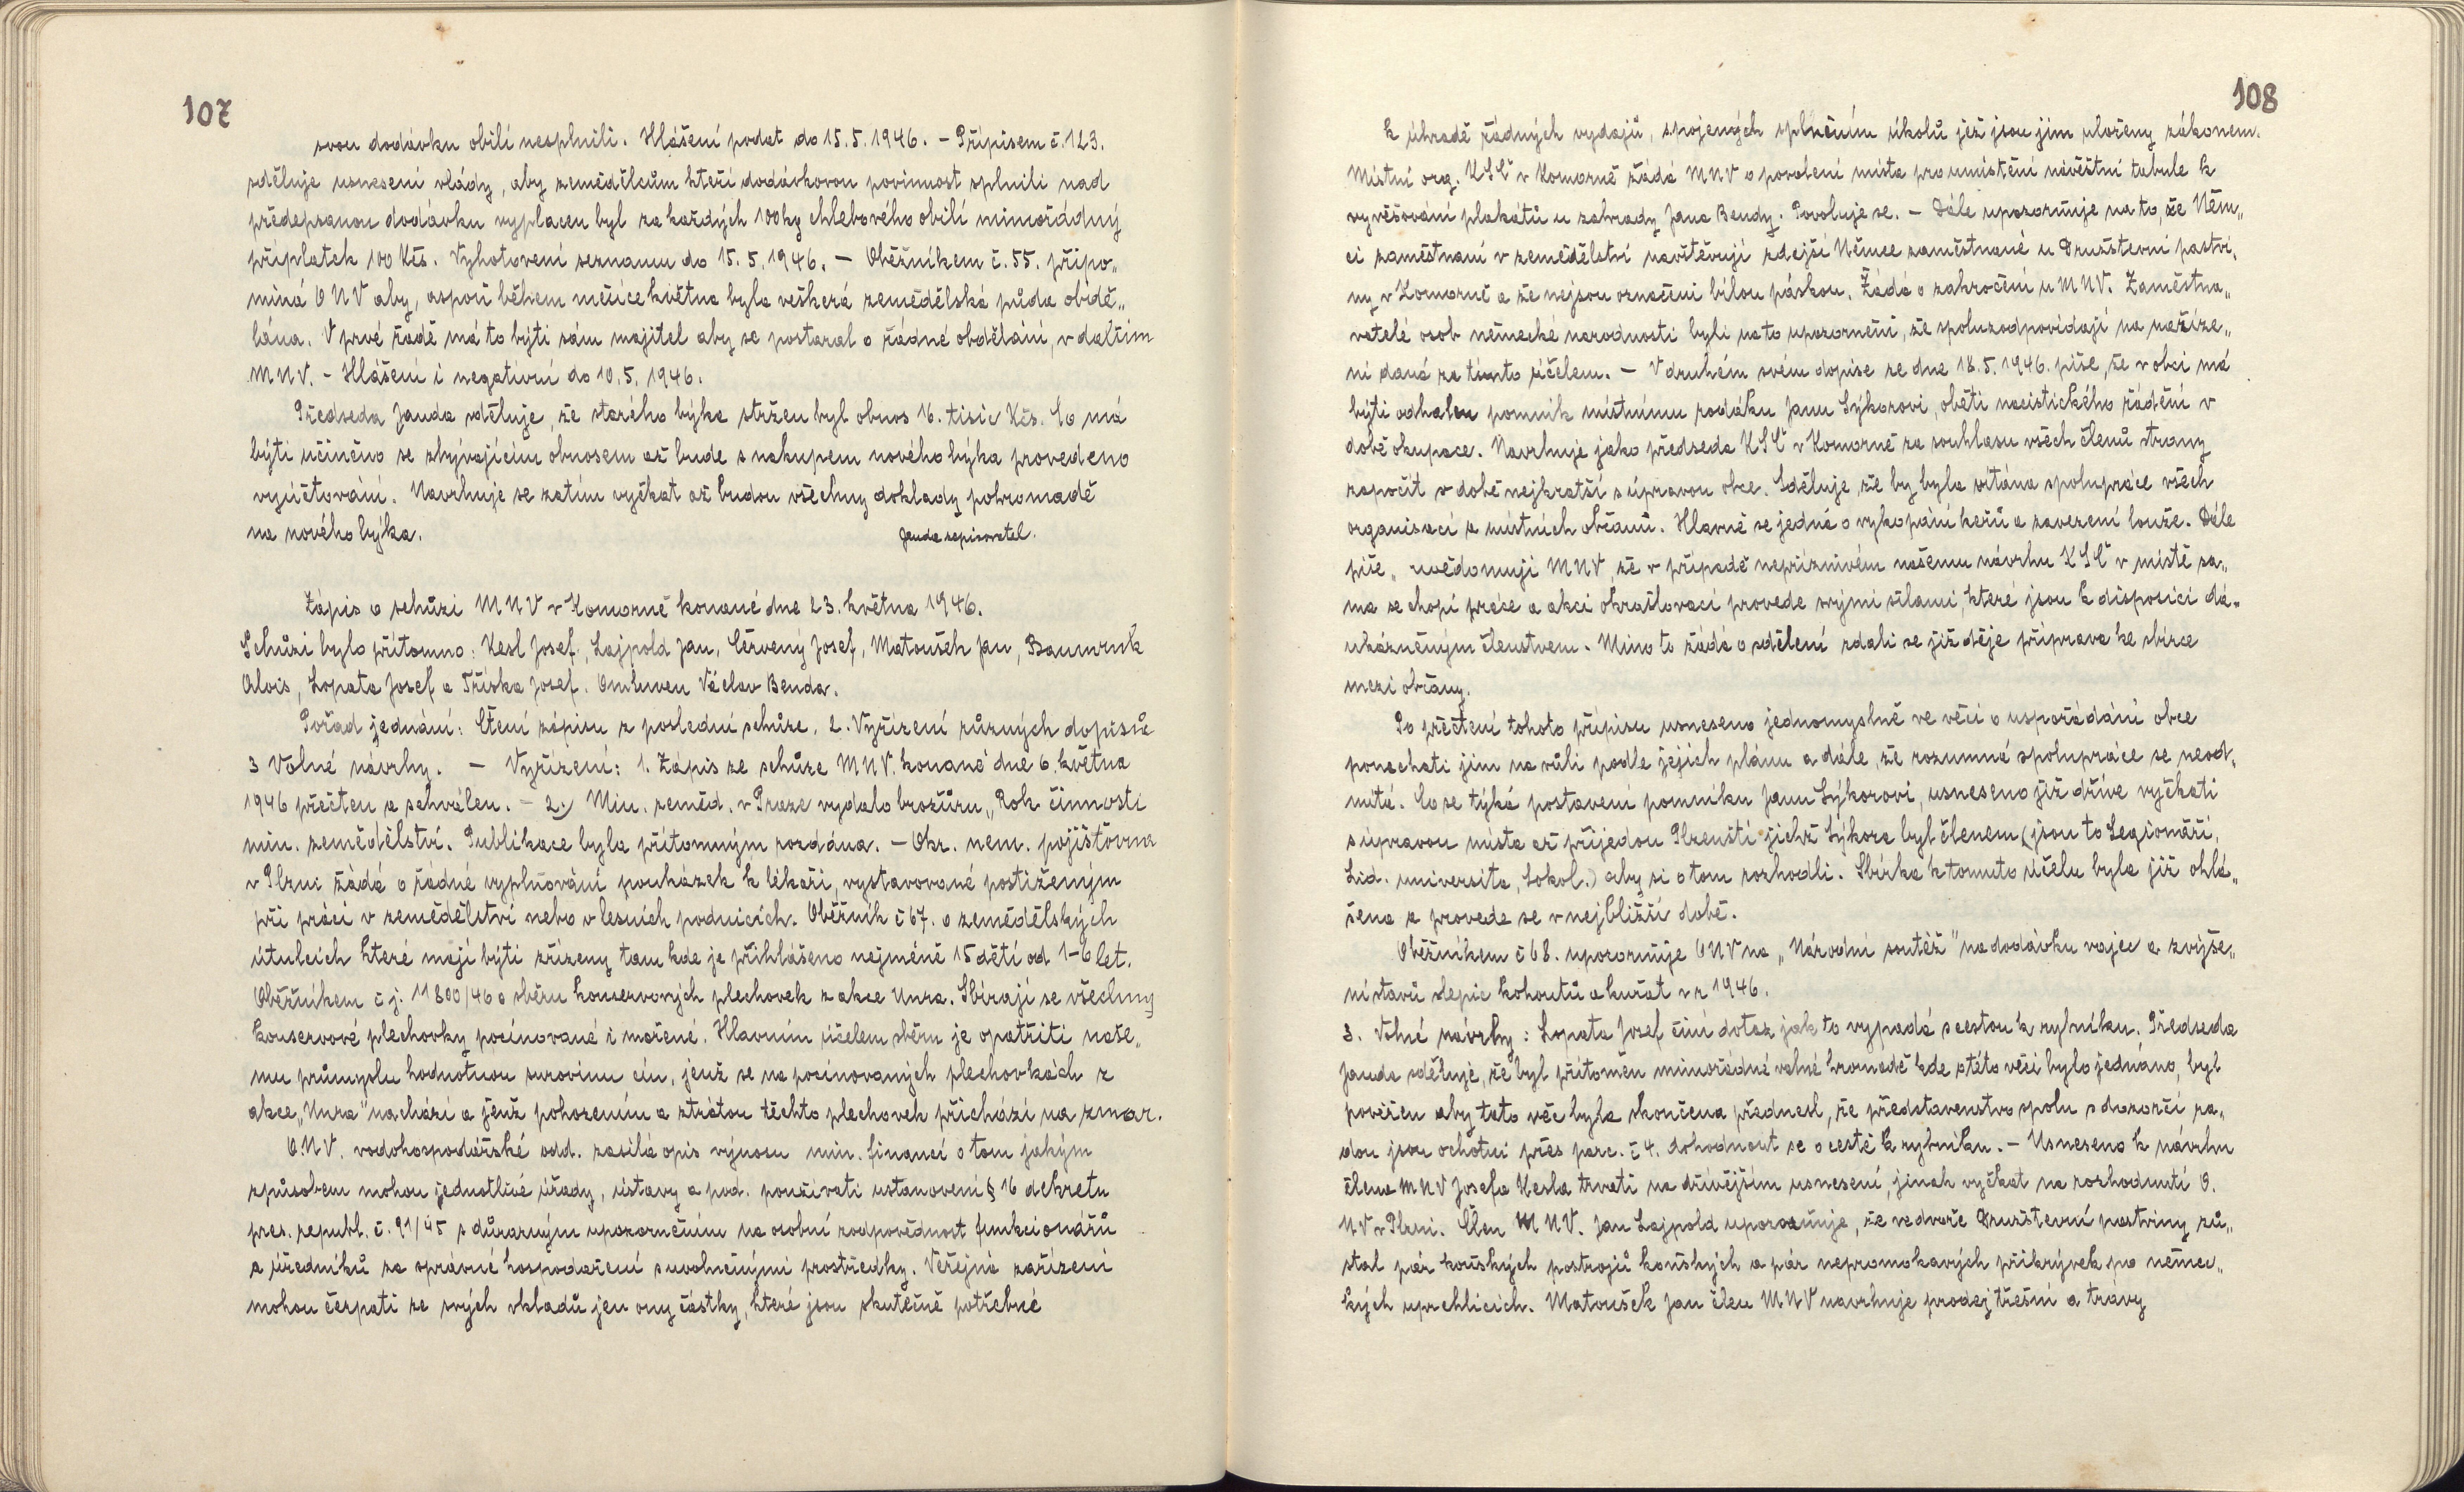 107
svou dodávku obilí nesplnili. Hlášení podat do 15.5.1946. – Přípisem č. 123.
sděluje usnesení vlády, aby zemědělcům kteří dodávkovou povinnost splnili nad
předepsanou dodávku vyplacen byl za každých 100 kg chlebového obilí mimořádný
příplatek 100 Kčs. Vyhotovení seznamu do 15.5.1946. – Oběžníkem č. 55. připo„
míná ONV aby, aspoň během měsíce května byla veškerá zemědělská půda obdě„
lána. V prvé řadě má to býti sám majitel aby se postaral o řádné obdělání, v dalším
MNV. – Hlášení i negativní do 10.5.1946.
Předseda Janda sděluje, že starého býka stržen byl obnos 16. tisíc Kčs. Co má
býti učiněno se zbývajícím obnosem až bude s nákupem nového býka provedeno
vyúčtování. Navrhuje se zatím vyčkat až budou všechny doklady pohromadě
na nového býka.
Janda zapisovatel.
Zápis o schůzi MNV v Komorně konané dne 23. května 1946.
Schůzi bylo přítomno: Kesl Josef, Lajpold Jan, Červený Josef, Matoušek Jan, Baumruk
Alois, Lopata Josef a Tříska Josef. Omluven Václav Benda.
Pořad jednání: Čtení zápisu z poslední schůze, 2. Vyřízení různých dopisů
3 Volné návrhy. – Vyřízení: 1. Zápis ze schůze MNV. konané dne 6. května
1946 přečten a schválen. – 2.) Min. zeměd. v Praze vydalo brožůru „Rok činnosti
min. zemědělství. Publikace byla přítomným rozdána. – Okr. nem. pojišťovna
v Plzni žádá o řádné vyplňování poukázek k lékaři, vystavované postiženým
při práci v zemědělství nebo v lesních podnicích. Oběžník č 67. o zemědělských
útulcích které mají býti zřízeny tam kde je přihlášeno nejméně 15 dětí od 1-6 let.
Oběžníkem č j. 11800/46 o sběru konservových plechovek z akce Unra. Sbírají se všechny
konservové plechovky pocínované i mořené. Hlavním účelem sběru je opatřiti naše„
mu průmyslu hodnotnou surovinu cín, jenž se na pocínovaných plechovkách z
akce „Unra" nachází a jenž pohozením a ztrátou těchto plechovek přichází na zmar.
O.N.V. vodohospodářské odd. zasílá opis výnosu min. financí o tom jakým
způsobem mohou jednotlivé úřady, ústavy a pod. používati ustanovení § 16 dekretu
pres. republ. č. 91/45 s důrazným upozorněním na osobní zodpovědnost funkcionářů
a úředníků za správné hospodaření s uvolněnými prostředky. Veřejná zařízení
mohou čerpati ze svých vkladů jen ony částky, které jsou skutečně potřebné
108
k úhradě řádných vydajů, spojených splněním úkolů jež jsou jim uloženy zákonem.
Místní org. KSČ v Komorně žádá MNV o povolení místa pro umístění návěštní tabule k
vyvěšování plakátů u zahrady Jana Bendy. Povoluje se. – Dále upozorňuje na to, že Něm„
ci zaměstnaní v zemědělství navštěvují zdejší Němce zaměstnané u Družstevní pastvi„
ny v Komorně a že nejsou označeni bílou páskou. Žádá o zakročení u MNV. Zaměstna„
vatelé osob německé narodnosti byli na to upozorněni, že spoluzodpovídají na nařize„
ní daná za tímto účelem. – V druhém svém dopise ze dne 18.5.1946. píše, že v obci má
býti odhalen pomník místnímu rodáku Janu Sýkorovi, oběti nacistického řádění v
době okupace. Navrhuje jako předseda KSČ v Komorně za souhlasu všech členů strany
započít v době nejkratší s úpravou obce. Sděluje, že by byla vítána spolupráce všech
organisací a místních občanů. Hlavně se jedná o vykopání keřů a zavezení louže. Dále
píše „uvědomuji MNV, že v případě nepříznivém našemu návrhu KSČ v místě sa„
ma se chopí práce a akci okrašlovací provede svými silami, které jsou k disposici dá„
ukázněným členstvem. Mimo to žádá o sdělení zdali se již děje příprava ke sbírce
mezi občany.
Po přečtení tohoto přípisu usneseno jednomyslně ve věci o uspořádání obce
ponechati jim na vůli podle jejich plánu a dále, že rozumná spolupráce se neod„
mítá. Co se týká postavení pomníku Janu Sýkorovi, usneseno již dříve vyčkati
s úpravou místa až přijedou Plzenští jichž Sýkora byl členem (jsou to Legionáři,
Lid. universita, Sokol.) aby si o tom rozhodli. Sbírka k tomuto účelu byla již ohlá„
šena a provede se v nejbližší době.
Oběžníkem č 68. upozorňuje ONV na „Národní soutěž" na dodávku vajec a zvýše„
ní stavů slepic kohoutů a kuřat v r 1946.
3. Volné návrhy: Lopata Josef činí dotaz jak to vypadá s cestou k rybníku. Předseda
Janda sděluje, že byl přítomen mimořádné valné hromadě kde o této věci bylo jednáno, byl
pověřen aby tato věc byla skončena přednesl, že představenstvo spolu s dozorčí ra„
dou jsou ochotni přes parc. č 4. dohodnout se o cestě k rybníku. – Usneseno k návrhu
člena MNV Josefa Kesla trvati na dřívějším usnesení, jinak vyčkat na rozhodnutí O.
NV v Plzni. Člen MNV. Jan Lajpold upozorňuje, že ve dvoře Družstevní pastviny zů„
stal pár koňských postrojů koňských a pár nepromokavých přikrývek po němec„
kých uprchlicích. Matoušek Jan člen MNV navrhuje prodej třešní a travy